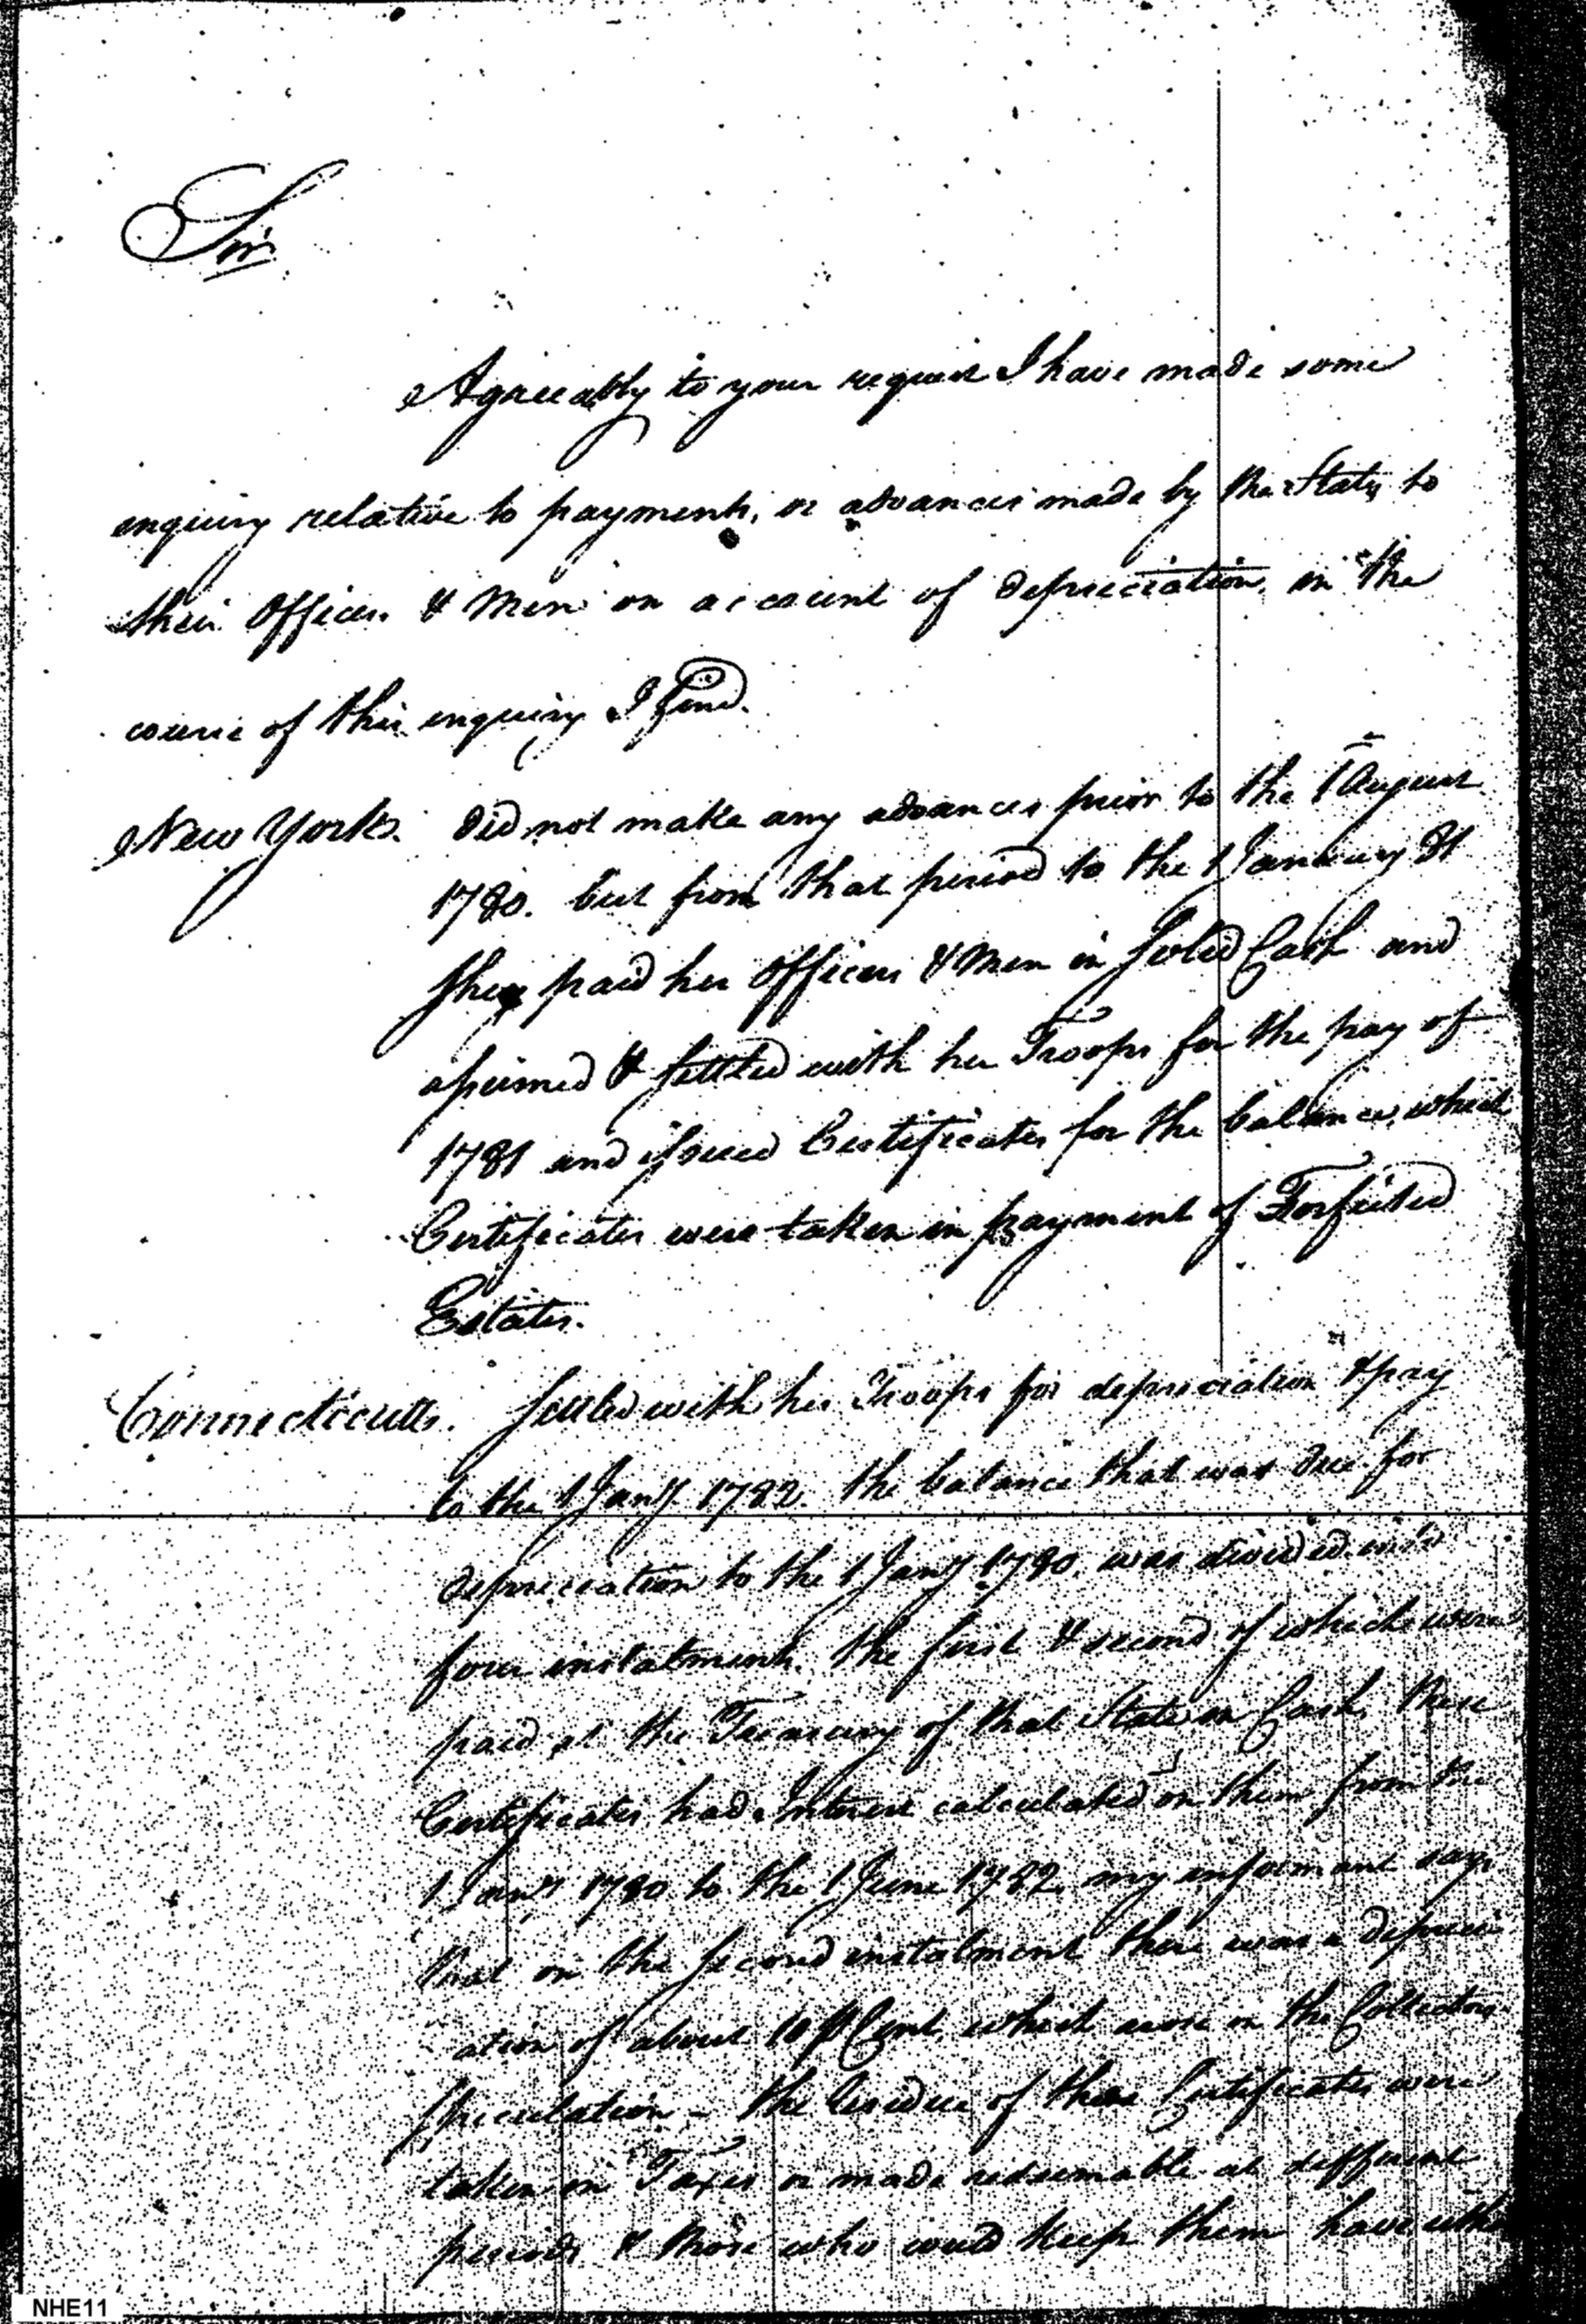 Sir
Agreeably to your request I have made some
enquiry relative to payments, or advances made by the States to
their Officers & Men on account of depreciation, in the
course of this enquiry I find.
New York. did not make any advances prior to the 1 August
1780. but from that period to the 1 January 81
She paid her Officers & Men in Solid Cash and
assumed & settled with her Troops for the pay of
1781 and issued Certificates for the balance, which
Certificates were taken in payment of Forfeited
Estates.
Connecticutt. Settled with her Troops for depreciation & pay
to the 1 Jany 1782. the balance that was due for
depreciation to the 1 Jany 1780. was divided into
four instalments. the first & second of which were
paid at the Treasury of that State in Cash, these
Certificates had Interest calculated on them from the
1 Jany 1780 to the 1 June 1782. my informant says
that on the second instalment there was a depreci
ation of about 10 ⅌ Cent, which arose on the Collectors
Speculation - the residue of these Certificates were
taken in Taxes or made redeemable at different
periods & those who could keep them have
NHE11